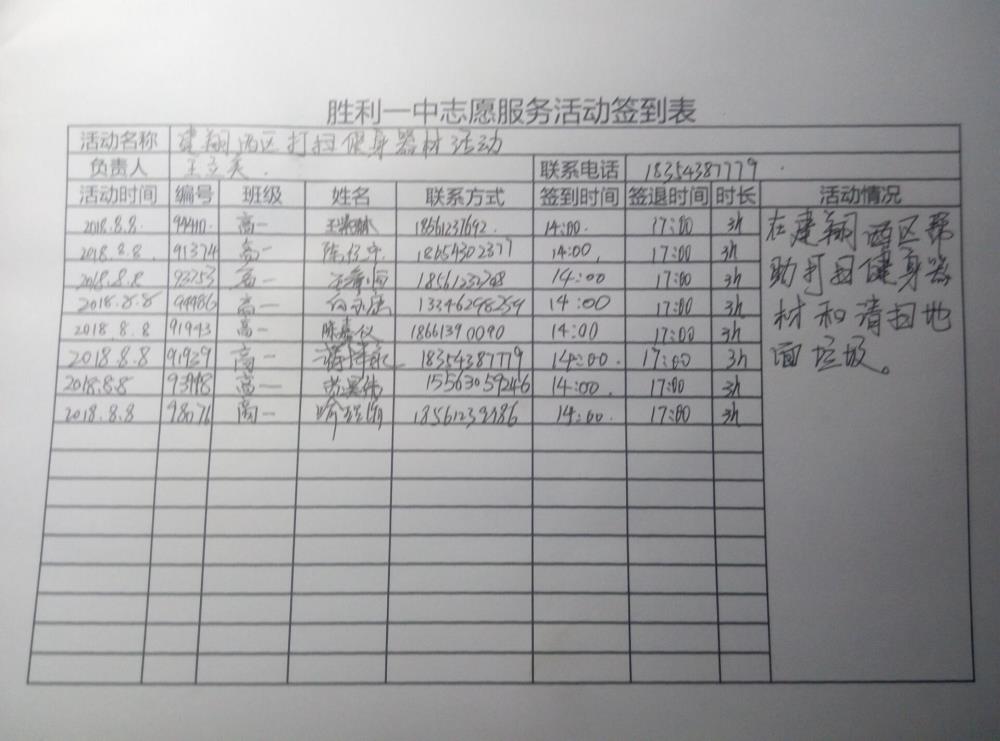 胜利一中志愿服务活动签到表
活动名称 建翔西区打扫健身器材活动
负责人 王立美 联系电话 18354387779
活动时间 编号 班级 姓名 联系方式 签到时间 签退时间 时长 活动情况
2018.8.8. 94410 高一 18661237692 14:00. 17:00 3h
2018.8.8. 91374 高一 18654302377 14:00. 17:00 3h
2018.8.8 93753 高一 14:00 17:00 3h
2018.8.8 94486 高一 13346298259 14:00 17:00 3h
2018.8.8 91943 高一 陈嘉仪 18661390090 14:00 17:00 3h
2018.8.8 91939 高一 18354387779 14:00. 17:00 3h
2018.8.8 高一 15563059246 14:00. 17:00 3h
2018.8.8 98071 高一 14:00. 17:00 3h
在建翔西区帮
助打扫健身器
材和清扫地
面垃圾。